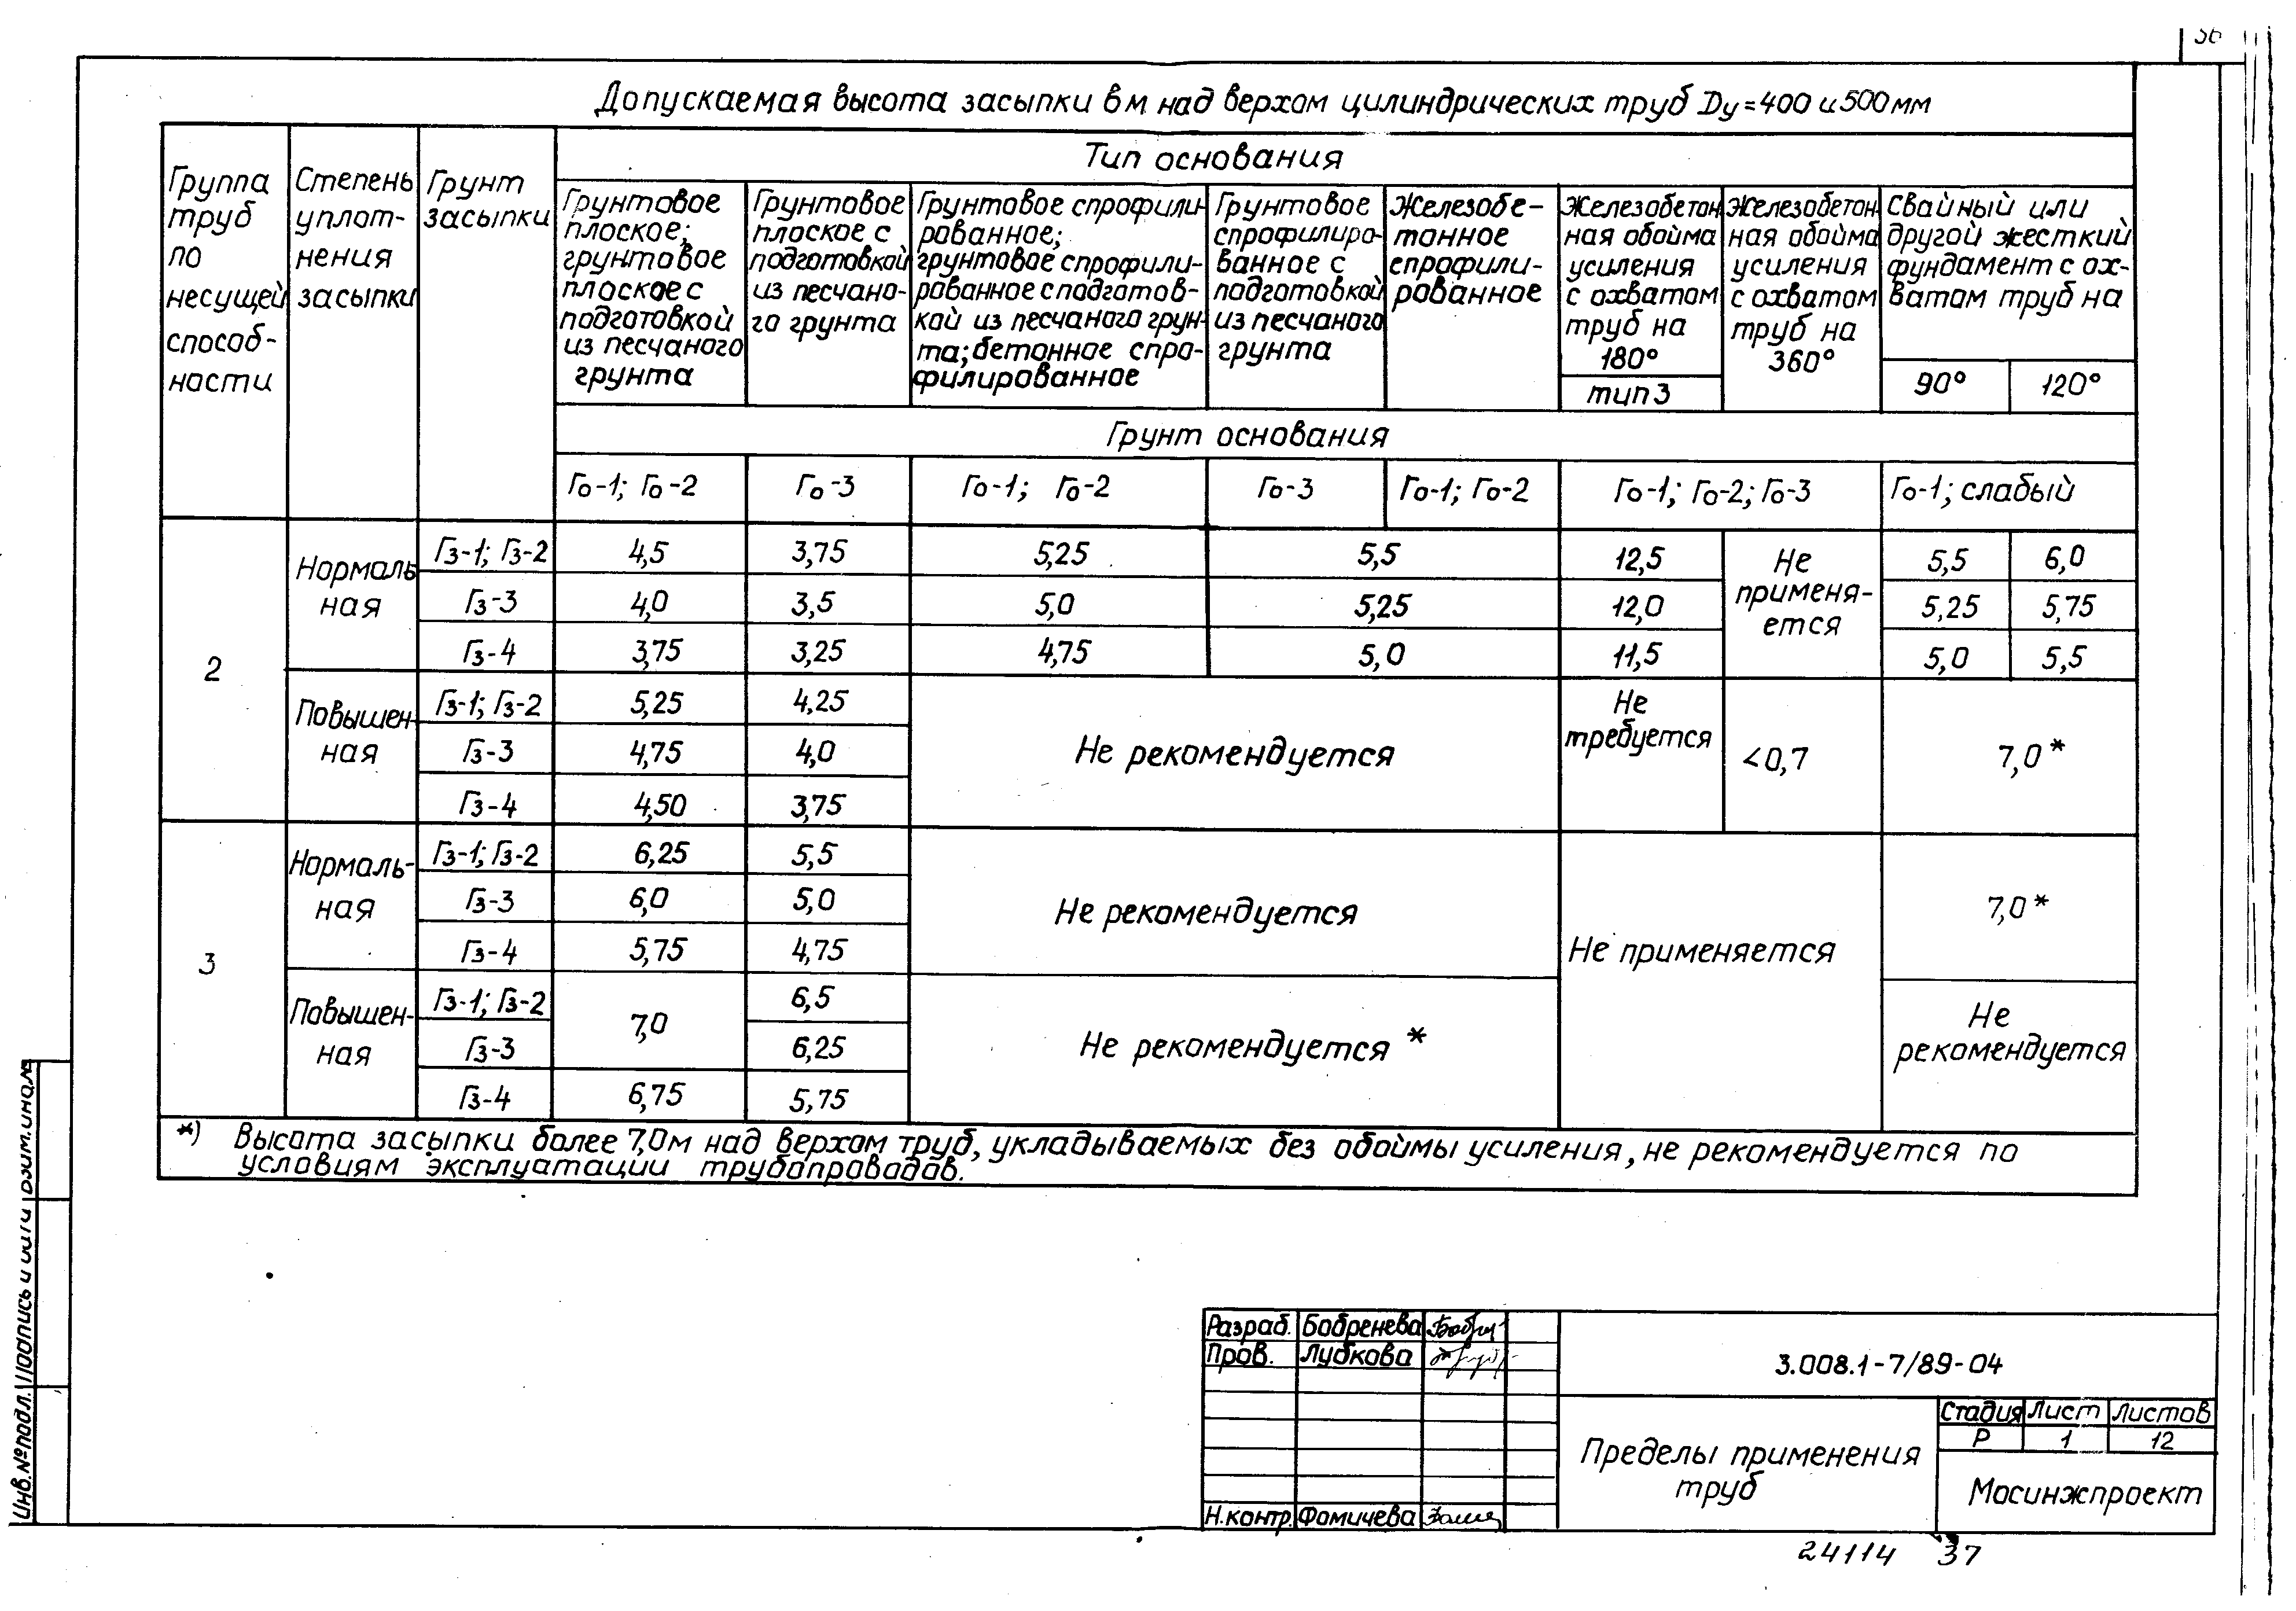 36
Допускаемая высота засыпки в м над верхом цилиндрических труб Dу=400 и 500 мм
Группа труб по несущей способ-ности
Степень уплот-нения засыпки
Грунт засыпки
Тип основания
Грунтовое плоское; грунтовое плоское с подготовкой из песчаного грунта
Грунтовое плоское с подготовкой из песчано-го грунта
Грунтовое спрофили-рованное; грунтовое спрофили-рованное с подготов-кой из песчаного грун-та; бетонное спро-филированное
Грунтовое спрофилиро-ванное с подготовкой из песчаного грунта
Железобе-тонное спрофили-рованное
Железобетон-ная обойма усиления с охватом труб на 180°
тип 3
Железобетон-ная обойма усиления с охватом труб на 360°
Свайный или другой жесткий фундамент с ох-ватом труб на
90° 120°
Грунт основания
Го-1; Го-2 Го-3 Го-1; Го-2 Го-3 Го-1; Го-2 Го-1; Го-2; Го-3 Го-1; слабый
2
Нормаль-ная
Гз-1; Гз-2 4,5 3,75 5,25 5,5 12,5 Не применя-ется 5,5 6,0
Гз-3 4,0 3,5 5,0 5,25 12,0 5,25 5,75
Гз-4 3,75 3,25 4,75 5,0 11,5 5,0 5,5
Повышен-ная
Гз-1; Гз-2 5,25 4,25 Не рекомендуется Не требуется <0,7 7,0*
Гз-3 4,75 4,0
Гз-4 4,50 3,75
3
Нормаль-ная
Гз-1; Гз-2 6,25 5,5 Не рекомендуется Не применяется 7,0*
Гз-3 6,0 5,0
Гз-4 5,75 4,75
Повышен-ная
Гз-1; Гз-2 7,0 6,5 Не рекомендуется * Не рекомендуется
Гз-3 6,25
Гз-4 6,75 5,75
*) Высота засыпки более 7,0м над верхом труб, укладываемых без обоймы усиления, не рекомендуется по
условиям эксплуатации трубопроводов.
Инв.№подл. Подпись и дата Взам.инв.№
Разраб. Бобренева
Пров. Лубкова
Н.контр. Фомичева
3.008.1-7/89-04
Пределы применения
труб
Стадия Лист Листов
Р 1 12
Мосинжпроект
24114 37